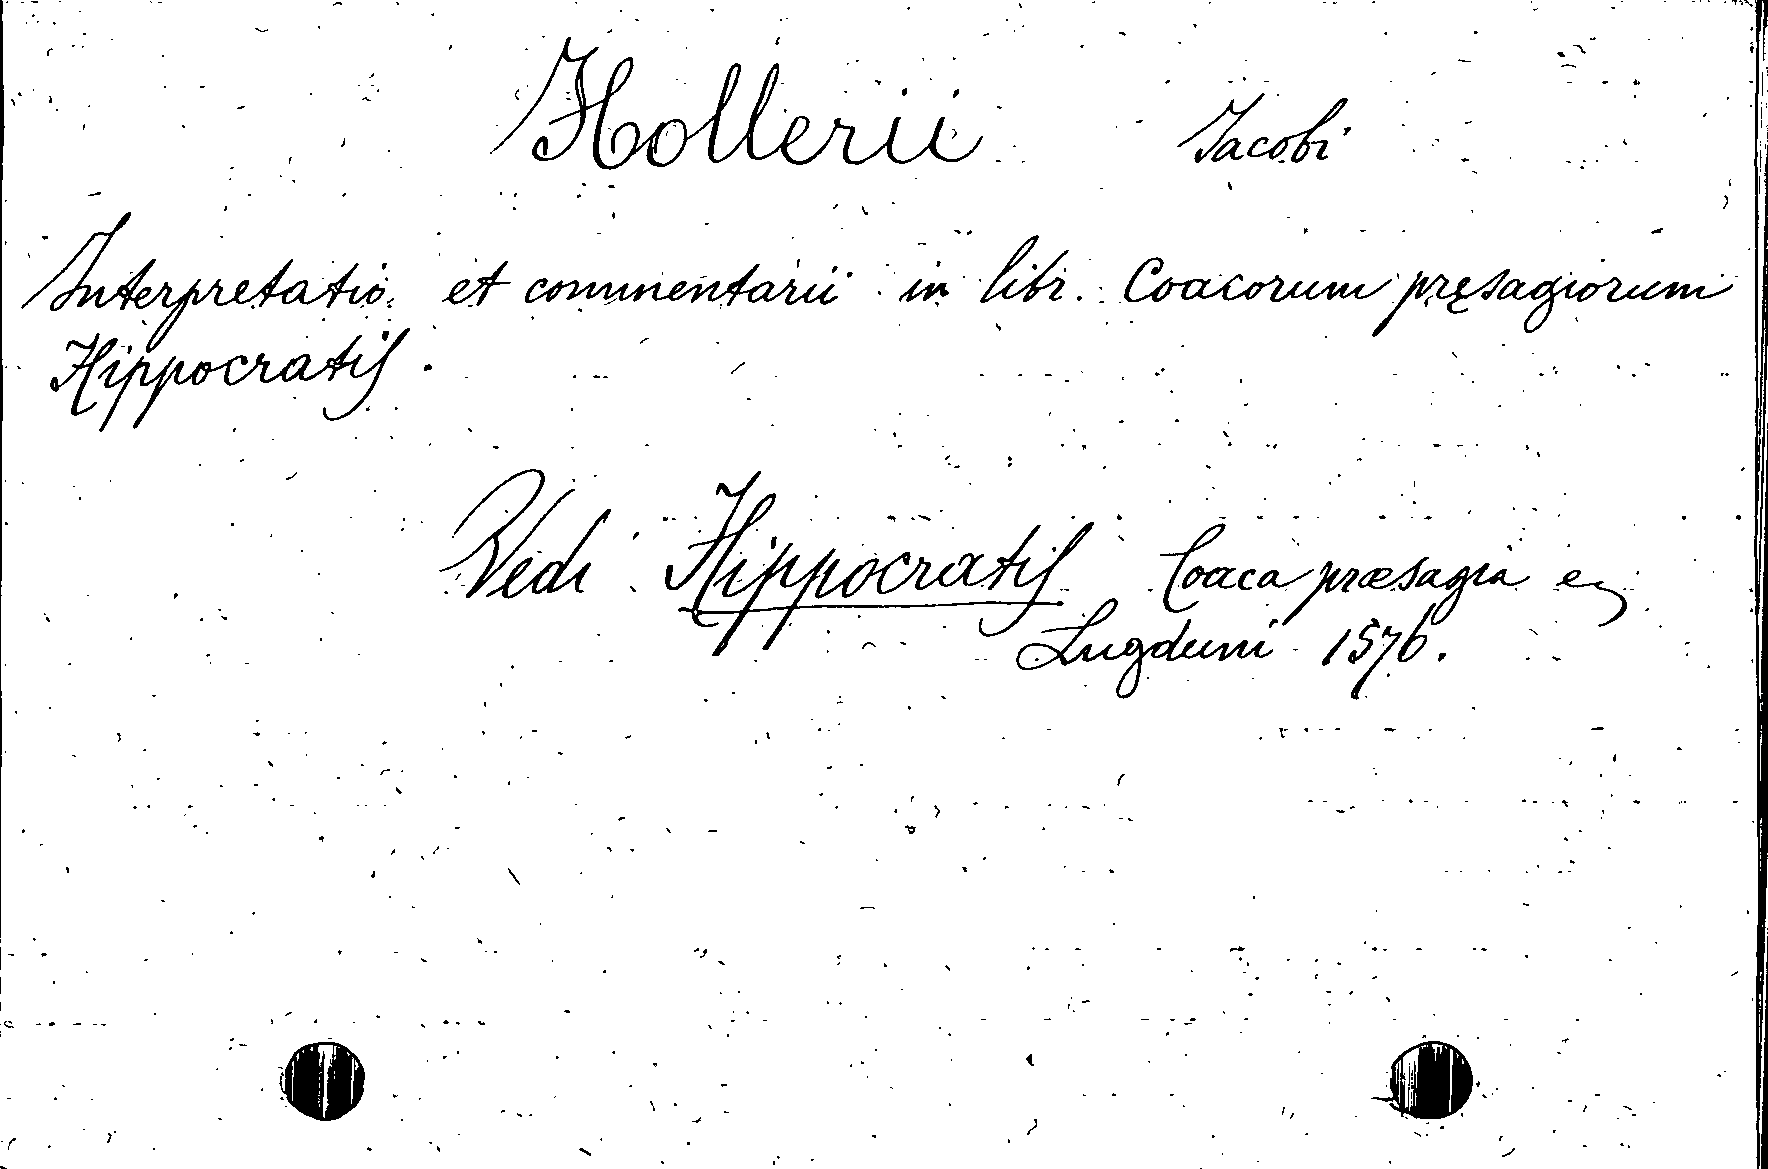 Hollerii Jacobi
Interpretatio et commentarii in libr. Coacorum pręsagiorum
Hippocratis.
Vedi Hippocratis Coaca præsagia
Lugduni 1576.